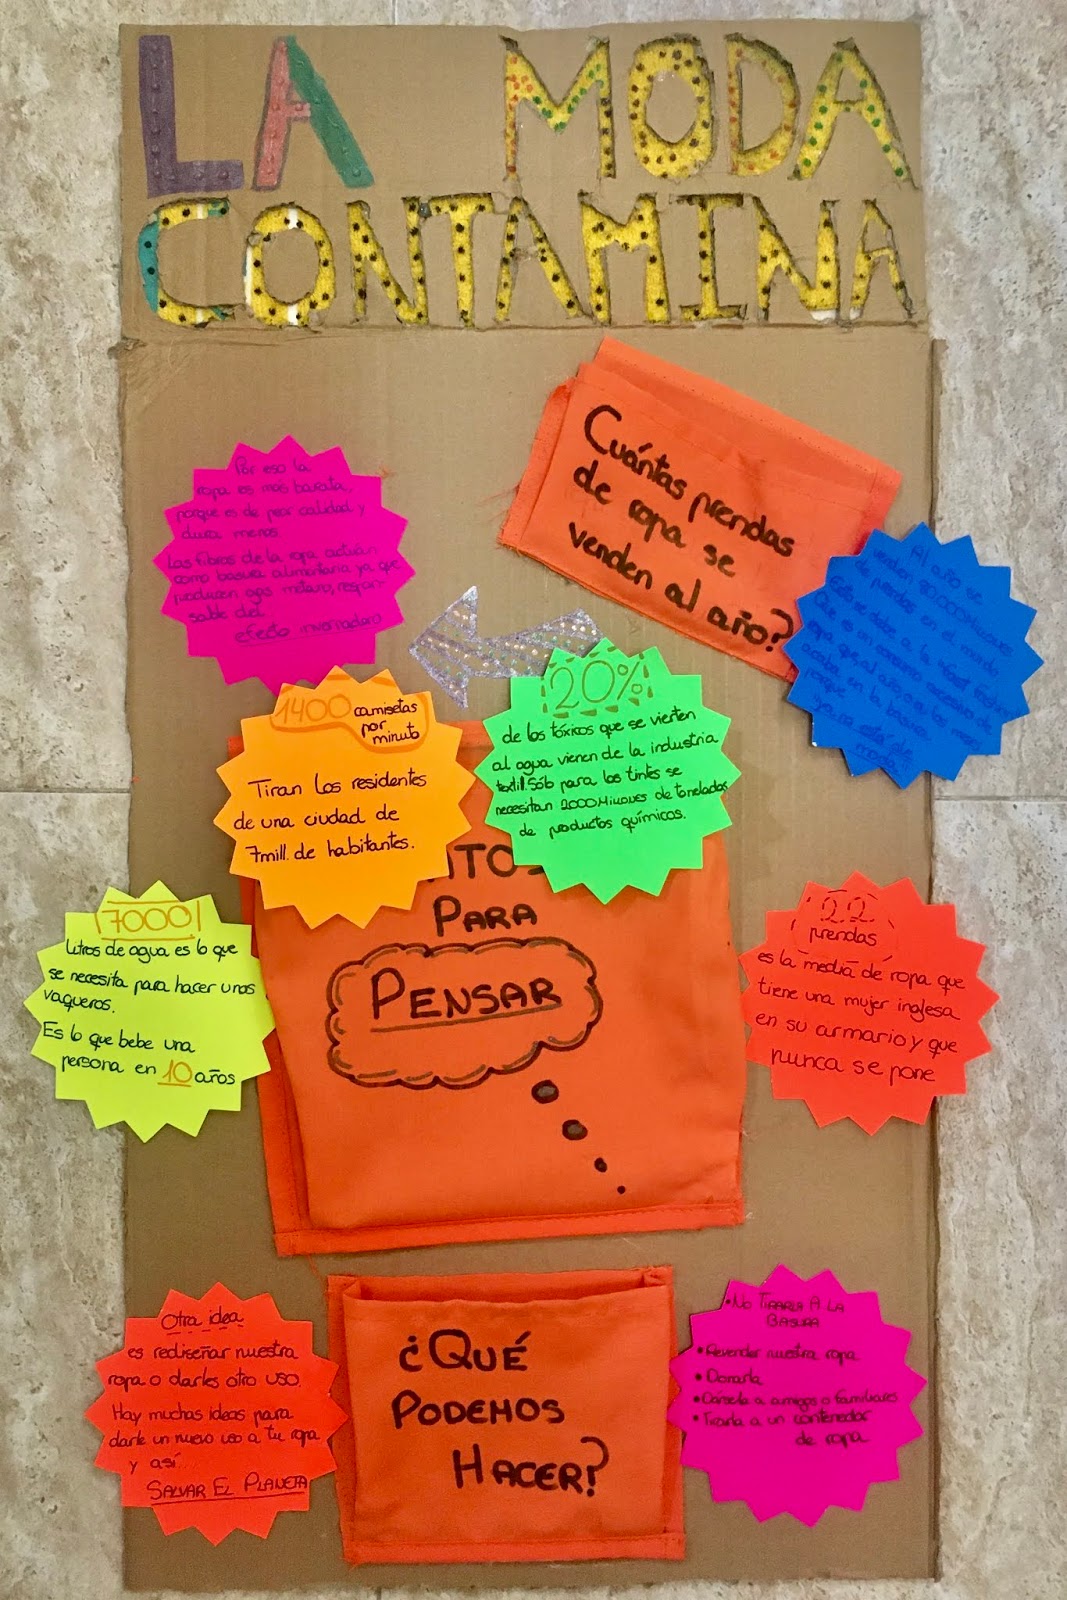 LA MODA
CONTAMINA
Cuántas prendas
de ropa se
venden al año?
Por eso la
ropa es más barata,
porque es de peor calidad y
dura menos.
Las fibras de la ropa actúan
como basura alimentaria ya que
producen gas metano, respon-
sable del
efecto invernadero
Al año se
venden 80.000 Millones
de prendas en el mundo
Esto se debe a la fast fashion
Que es un consumo excesivo de
ropa, que al año o a los meses
acaba en la basura
porque
de
moda
1400 camisetas
por
minuto
Tiran los residentes
de una ciudad de
7mill. de habitantes.
20%
de los tóxicos que se vierten
al agua vienen de la industria
textil. Sólo para los tintes se
necesitan 2000 Millones de toneladas
de productos químicos.
PARA
PENSAR
7000
Litros de agua es lo que
se necesita para hacer unos
vaqueros.
Es lo que bebe una
persona en 10 años
22
prendas
es la media de ropa que
tiene una mujer inglesa
en su armario y que
nunca se pone
Otra idea
es rediseñar nuestra
ropa o darles otro uso.
Hay muchas ideas para
darle un nuevo uso a tu ropa
y así
SALVAR EL PLANETA
¿QUÉ
PODEMOS
HACER?
• NO TIRARLA A LA
BASURA
• Revender nuestra ropa
• Donarla
• Dársela a amigos o familiares
• Tirarla a un contenedor
de ropa